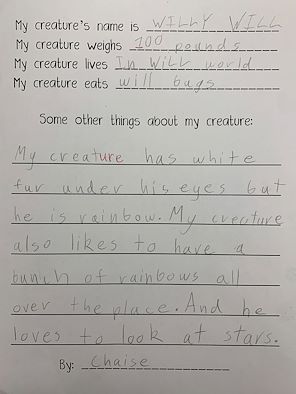 My creature's name is WILLY WILL
My creature weighs 100 pounds
My creature lives In WiLL world
My creature eats will bugs
Some other things about my creature:
My creature has white
fur under his eyes but
he is rainbow. My creature
also likes to have a
bunch of rainbows all
over the place. And he
loves to look at stars.
By: Chaise